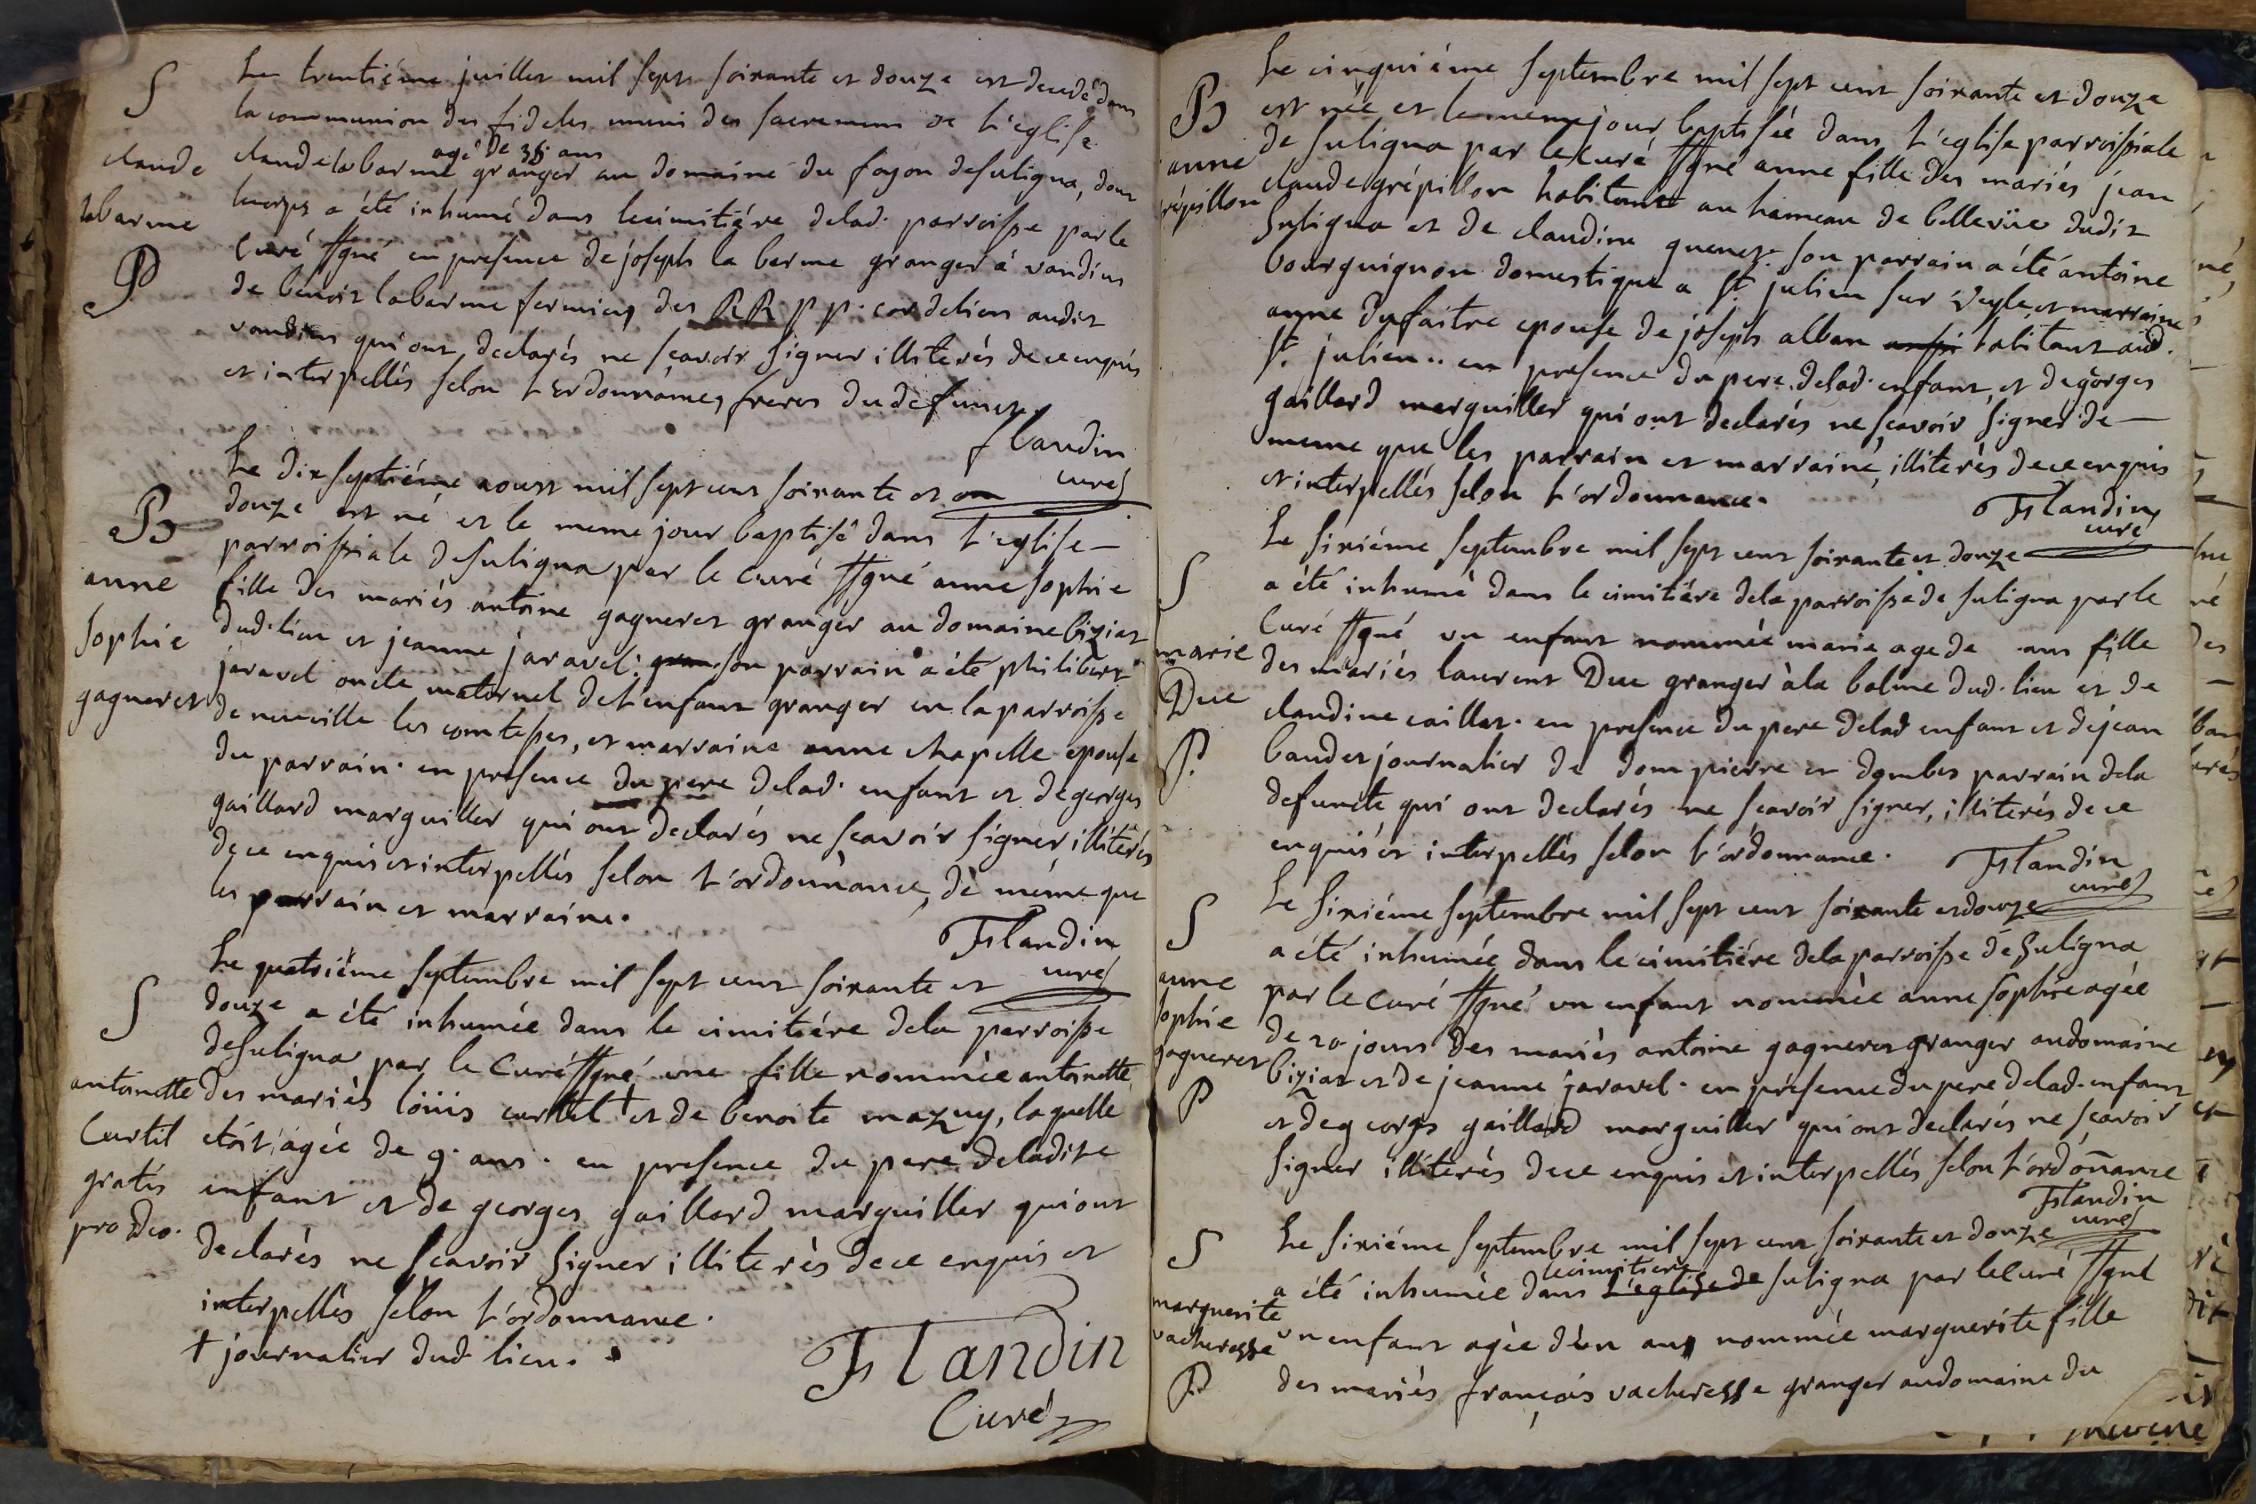 S
claude
labarme
P
Le trentiéme juillet mil sept soixante et douze est decedé dans
la communion des fideles muni des sacremens de l'eglise
agé de 38 ans
claude labarme granger au domaine du fayon de suligna, dont
le corps a été inhumé dans le cimitiére de lad. parroisse par le
Curé ssgné en presence de joseph la barme granger à vandins
de benoit labarme fermier des RR PP. cordeliers audit
vandins qui ont declarés ne sçavoir signer illiterés de ce enquis
et interpellés selon l'ordonnance, freres du defunct
flandin
curé
B
anne
sophie
gagneret
Le dix septiéme aoust mil sept cent soixante et on
douze est né et le meme jour baptisé dans l'eglise
parroissiale de suligna par le curé ssgné anne sophie
fille des mariés antoine gagneret granger au domaine biziat
dud. lieu et jeanne javavel. son parrain a été philibert
javavel oncle maternel de l'enfant granger en la parroisse
de neuville les comtesses, et marraine anne chapelle epouse
du parrain. en presence du pere de lad. enfant et de georges
gaillard marguiller qui ont declarés ne scavoir signer illiterés
de ce enquis et interpellés selon l'ordonnance, de méme que
les parrain et marraine.
Flandin
curé
S
antoinette
Curtil
gratis
pro deo.
Le quatriéme septembre mil sept cent soixante et
douze a été inhumée dans le cimitiére de la parroisse
de suligna par le Curé ssgné une fille nommée antoinette
des mariés loüis curtil † et de benoite mazuy, laquelle
etoit agée de 9. ans. en presence du pere de ladite
enfant et de georges gaillard marguiller qui ont
declarés ne scavoir signer illiterés de ce enquis et
interpellés selon l'ordonnance.
† journalier dud lieu.
Flandin
Curé
B
anne
grépillon
Le cinquiéme septembre mil sept cent soixante et douze
est née et le meme jour baptisée dans l'eglise parroissiale
de suligna par le Curé ssgné anne fille des mariés jean
claude grépillon habitant au hameau de bellevüe dudit
Suligna et de claudine guenet. son parrain a été antoine
bourguignon domestique a St. julien sur Veyle, et marraine
anne dufaitre epouse de joseph alban aussi habitant aud.
St. julien.. en presence du pere de lad. enfant, et de gorges
gaillard marguiller qui ont declarés ne sçavoir signer de
meme que les parrain et marraine, illiterés de ce enquis
et interpellés selon l'ordonnance.
Flandin
curé
S
marie
Duc
P.
Le sixiéme septembre mil sept cent soixante et douze
a été inhumé dans le cimitiére de la parroisse de suligna par le
Curé ssgné un enfant nommée marie age de ans fille
des mariés laurent Duc granger à la balme dud. lieu et de
claudine caillat. en presence du pere de lad enfant et de jean
baudet journalier de dompierre en dombes parrain de la
defuncte qui ont declarés ne scavoir signer, illiterés de ce
enquis et interpellés selon l'ordonnance.
Flandin
curé
S
anne
sophie
gagneret
P
Le sixiéme septembre mil sept cent soixante et douze
a été inhumée dans le cimitiére de la parroisse de Suligna
par le Curé ssgné un enfant nommée anne sophie agée
de 20 jours des mariés antoine gagneret granger au domaine
biziat et de jeanne javavel. en présence du pere de lad. enfant
et de georges gaillard marguiller qui ont declarés ne sçavoir
signer illiterés de ce enquis et interpellés selon l'ordonnance
Flandin
curé
S
marguerite
vacheresse
P.
Le sixiéme septembre mil sept cent soixante et douze
le cimitiére
a été inhumée dans l'eglise de suligna par le Curé ssgné
un enfant agée d'un an nommée marguerite fille
des mariés françois vacheresse granger au domaine du